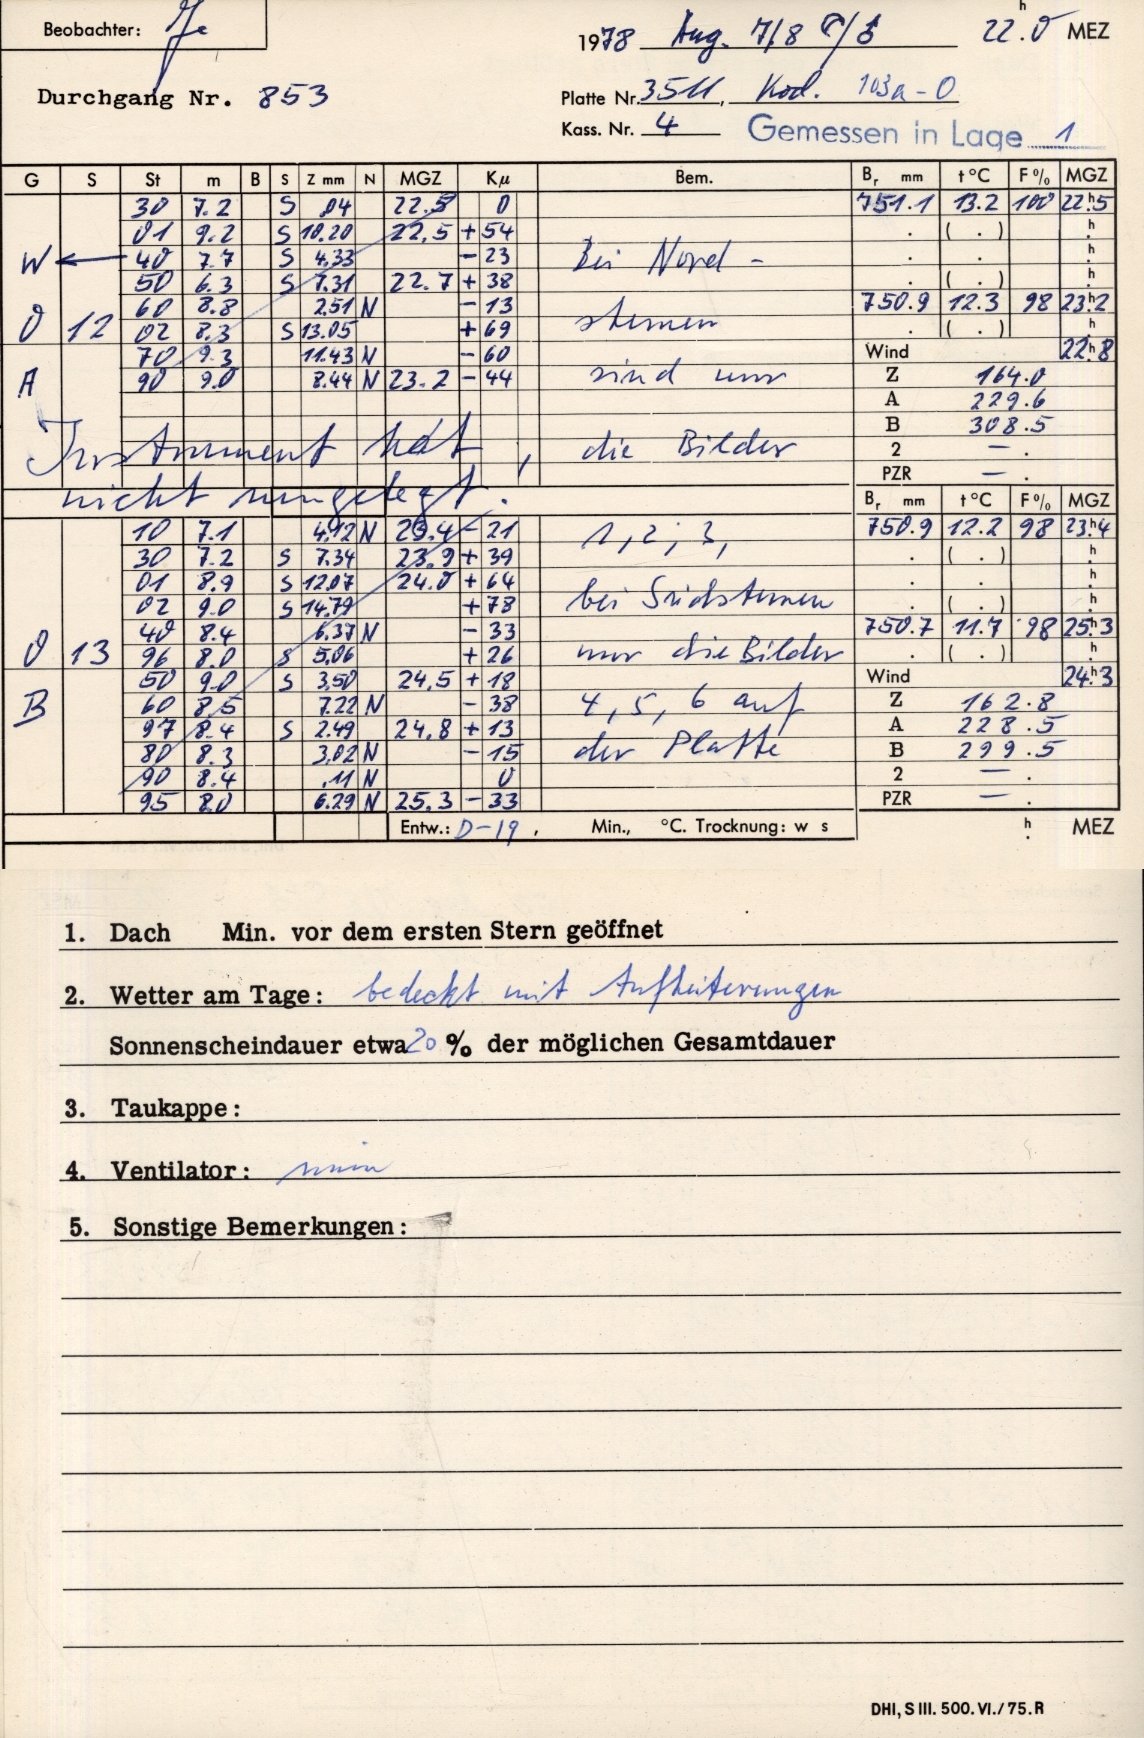 Beobachter: Je
1978 Aug. 7/8 22.0 h MEZ
Durchgang Nr. 853
Platte Nr. 3511, Kod. 103a-O
Kass. Nr. 4 Gemessen in Lage 1
G S St m B S Z mm N MGZ Kµ Bem. Br mm t °C F % MGZ
30 7.2 S .04 22.5 0 751.1 13.2 100 22h5
01 9.2 S 10.20 22.5 +54 . ( . ) h
W 40 7.7 S 4.33 -23 Bei Nord- . . h
50 6.3 S 7.31 22.7 +38 . ( . ) h
60 8.8 2.51 N -13 750.9 12.3 98 23h2
0 12 02 8.3 S 13.05 +69 sternen . ( . ) h
70 9.3 11.43 N -60 Wind 22h8
A 90 9.0 8.44 N 23.2 -44 sind nur Z 164.0
A 229.6
B 308.5
Instrument hat, die Bilder 2 — .
PZR — .
nicht umgelegt. Br mm t °C F % MGZ
10 7.1 4.12 N 23.4 -21 1, 2, 3, 750.9 12.2 98 23h4
30 7.2 S 7.34 23.9 +39 . ( . ) h
01 8.9 S 12.07 24.0 +64 . . h
02 9.0 S 14.79 +78 bei Südsternen . ( . ) h
40 8.4 6.37 N -33 750.7 11.7 98 25h3
0 13 96 8.0 S 5.06 +26 nur die Bilder . ( . ) h
50 9.0 S 3.50 24.5 +18 Wind 24h3
B 60 8.5 7.22 N -38 4, 5, 6 auf Z 162.8
97 8.4 S 2.49 24.8 +13 A 228.5
80 8.3 3.02 N -15 der Platte B 299.5
90 8.4 .11 N 0 2 — .
95 8.0 6.29 N 25.3 -33 PZR — .
Entw.: D-19, Min., °C. Trocknung: w s h MEZ
1. Dach Min. vor dem ersten Stern geöffnet
2. Wetter am Tage: bedeckt mit Aufheiterungen
Sonnenscheindauer etwa 20 % der möglichen Gesamtdauer
3. Taukappe:
4. Ventilator: nein
5. Sonstige Bemerkungen:
DHI, S III. 500. VI./75. R